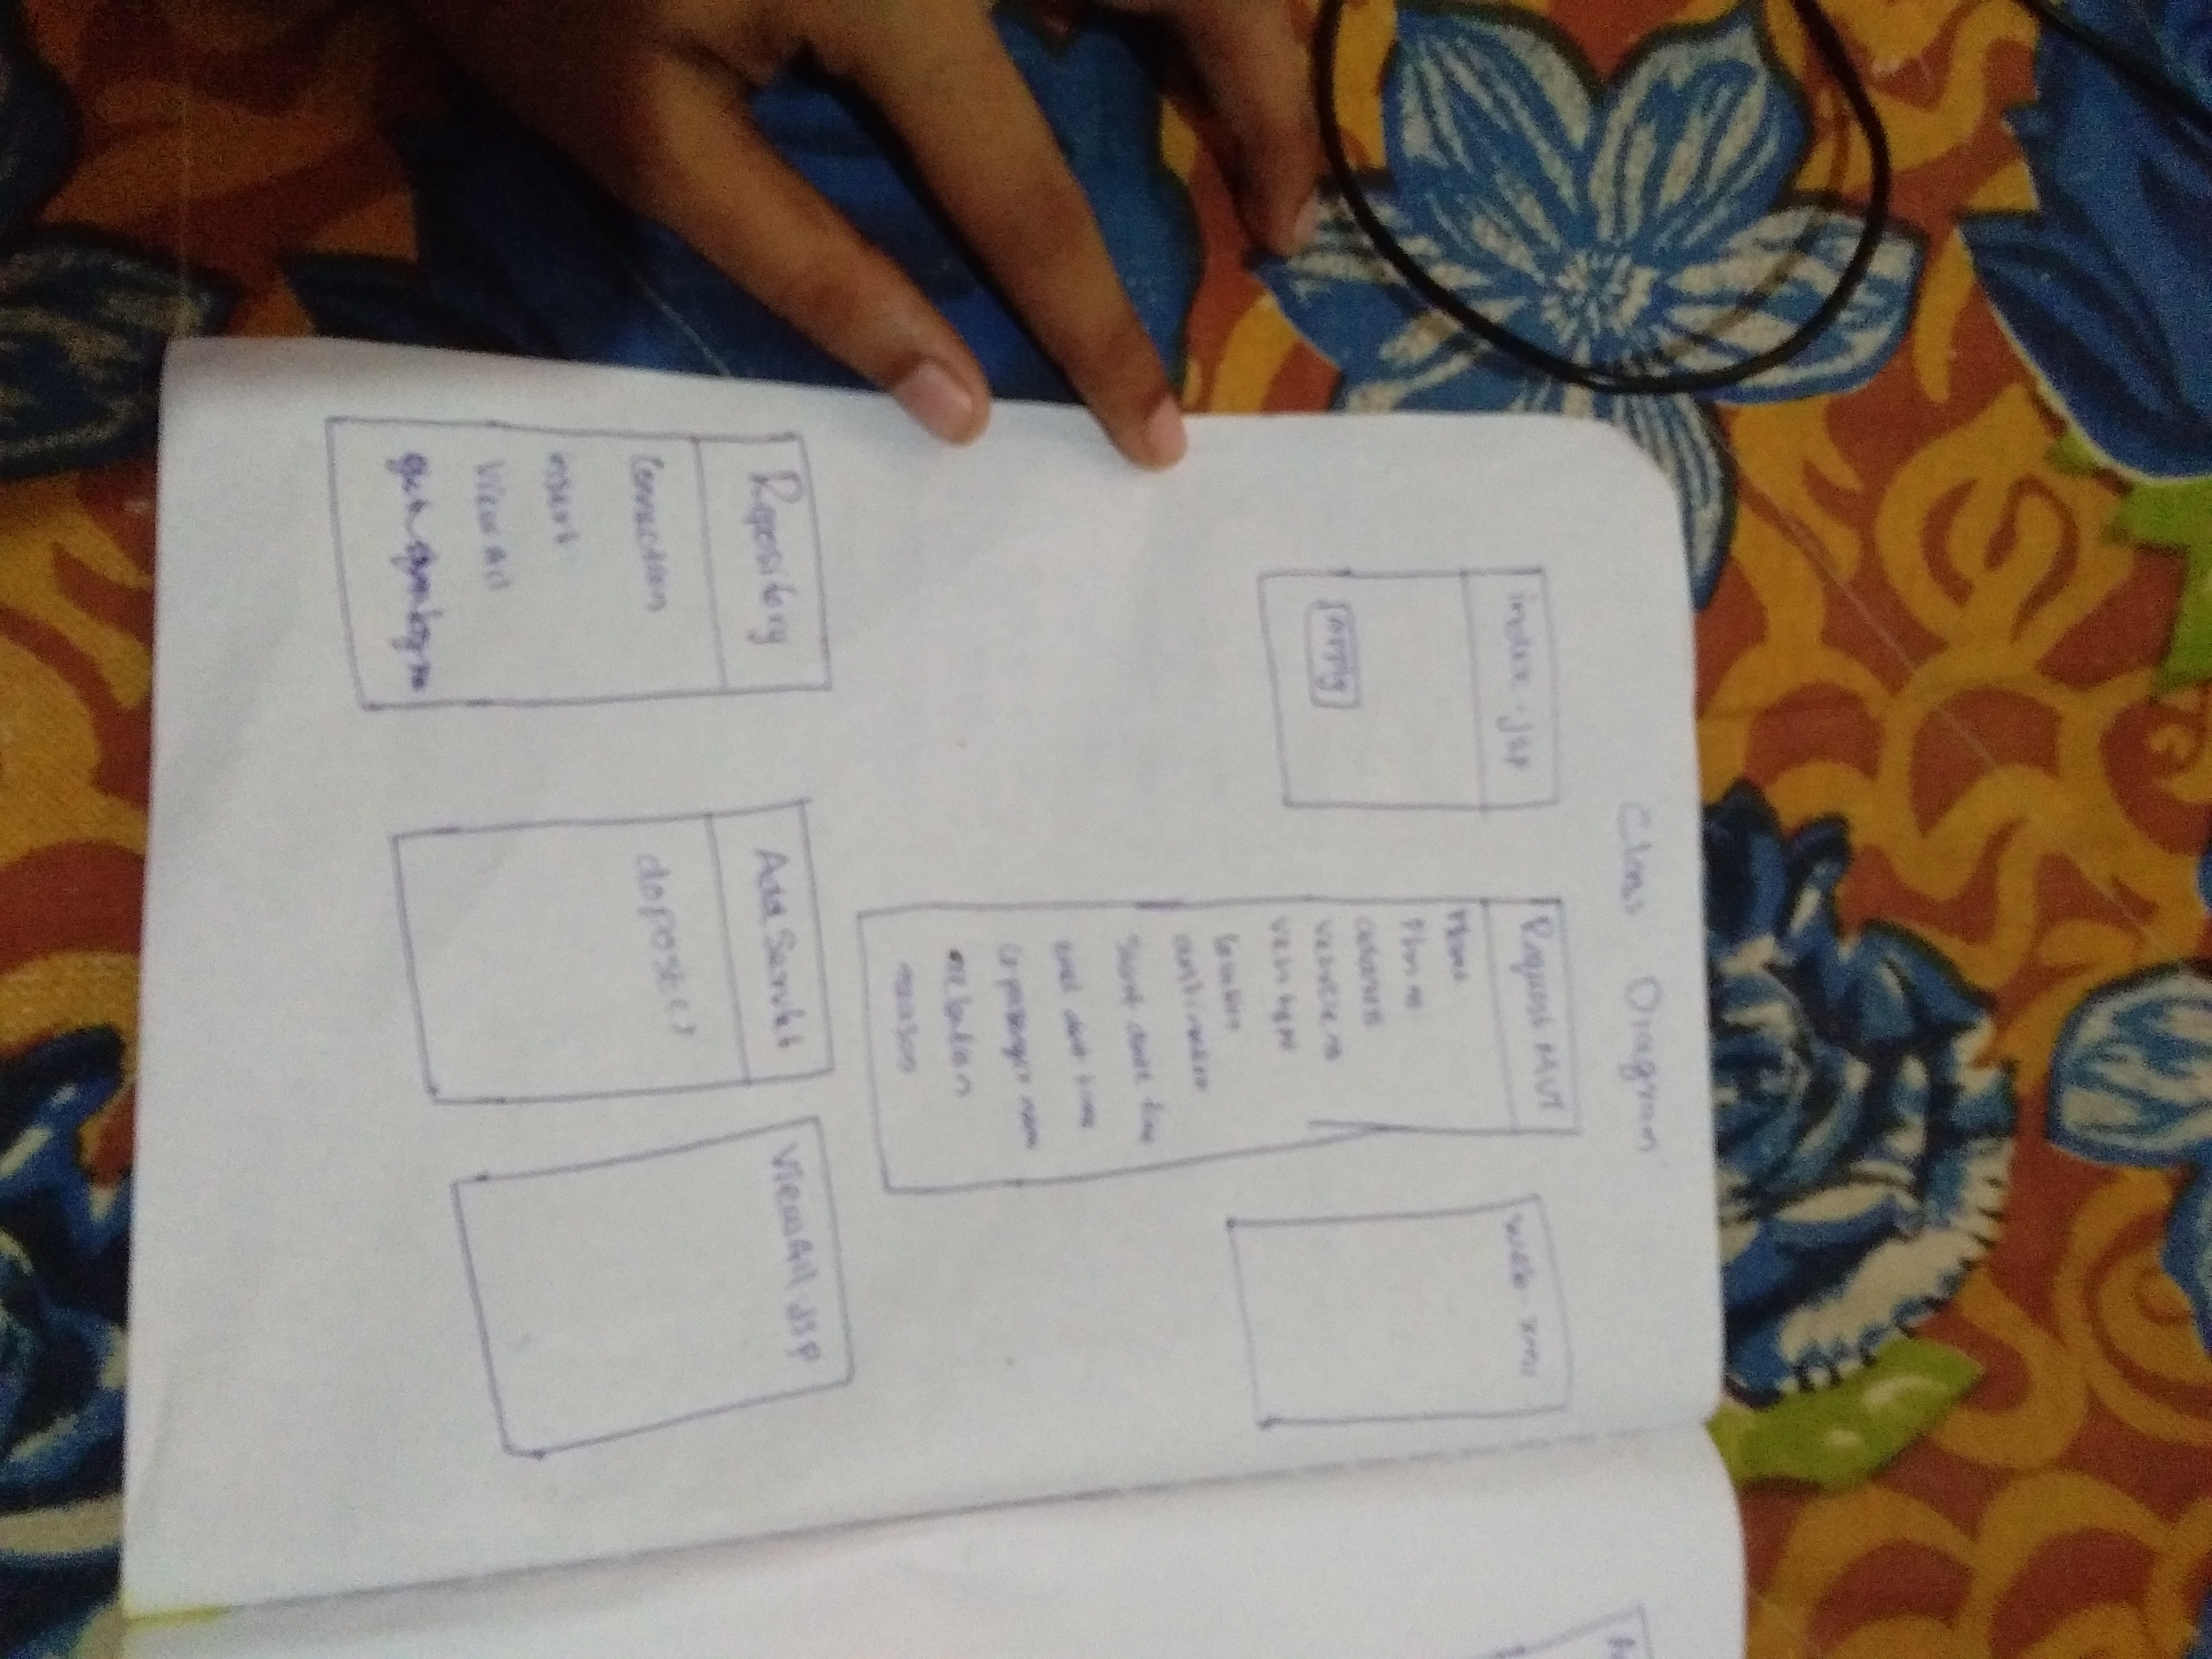 Class Diagram
index.jsp
Apply
Request MVM
Name
Ph no
address
vehicle no
veh type
location
destination
Start date time
end date time
no passenger
relation
reason
web.xml
Repository
Connection
insert
View All
Add Servlet
doPost()
ViewAll.JSP